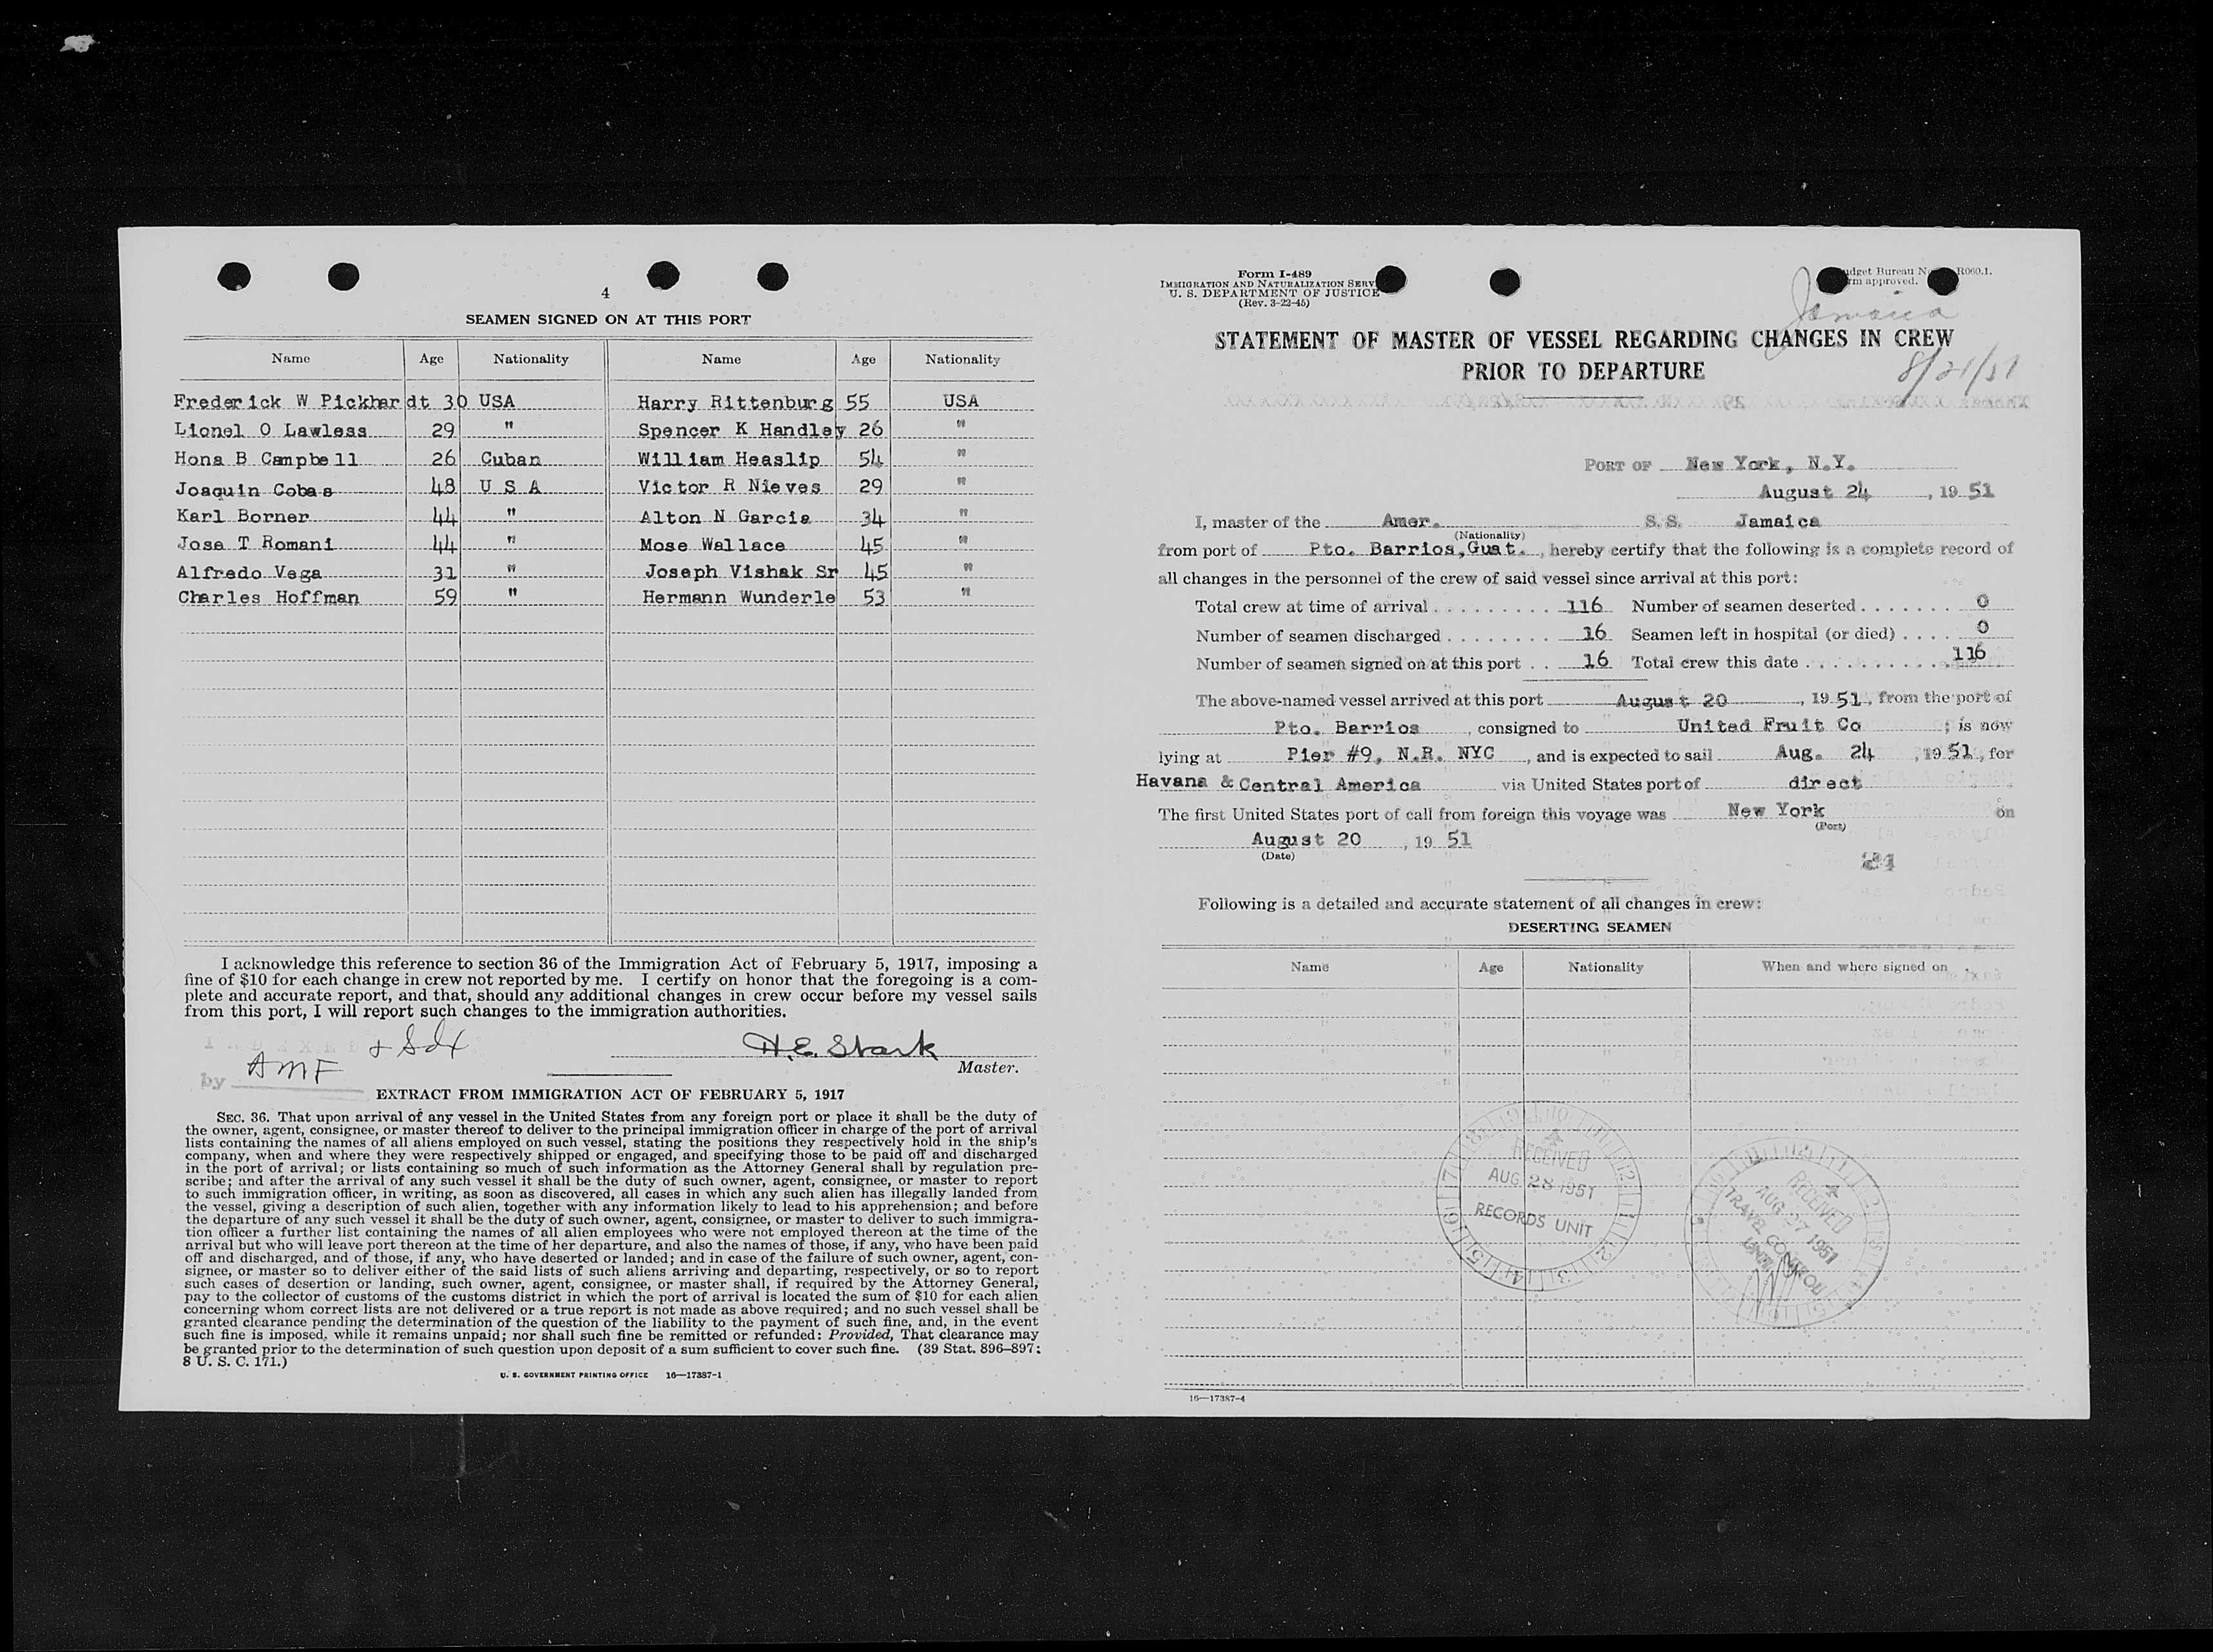 4
SEAMEN SIGNED ON AT THIS PORT
Name Age Nationality Name Age Nationality
Frederick W Pickhardt 30 USA Harry Rittenburg 55 USA
Lionel O Lawless 29 " Spencer K Handley 26 "
Hona B Campbell 26 Cuban William Heaslip 54 "
Joaquin Cobas 48 U S A Victor R Nieves 29 "
Karl Borner 44 " Alton N Garcia 34 "
Jose T Romani 44 " Mose Wallace 45 "
Alfredo Vega 31 " Joseph Vishak Sr 45 "
Charles Hoffman 59 " Hermann Wunderle 53 "
I acknowledge this reference to section 36 of the Immigration Act of February 5, 1917, imposing a
fine of $10 for each change in crew not reported by me. I certify on honor that the foregoing is a com-
plete and accurate report, and that, should any additional changes in crew occur before my vessel sails
from this port, I will report such changes to the immigration authorities.
H.E. Stark
by AMF
Master.
EXTRACT FROM IMMIGRATION ACT OF FEBRUARY 5, 1917
SEC. 36. That upon arrival of any vessel in the United States from any foreign port or place it shall be the duty of
the owner, agent, consignee, or master thereof to deliver to the principal immigration officer in charge of the port of arrival
lists containing the names of all aliens employed on such vessel, stating the positions they respectively hold in the ship's
company, when and where they were respectively shipped or engaged, and specifying those to be paid off and discharged
in the port of arrival; or lists containing so much of such information as the Attorney General shall by regulation pre-
scribe; and after the arrival of any such vessel it shall be the duty of such owner, agent, consignee, or master to report
to such immigration officer, in writing, as soon as discovered, all cases in which any such alien has illegally landed from
the vessel, giving a description of such alien, together with any information likely to lead to his apprehension; and before
the departure of any such vessel it shall be the duty of such owner, agent, consignee, or master to deliver to such immigra-
tion officer a further list containing the names of all alien employees who were not employed thereon at the time of the
arrival but who will leave port thereon at the time of her departure, and also the names of those, if any, who have been paid
off and discharged, and of those, if any, who have deserted or landed; and in case of the failure of such owner, agent, con-
signee, or master so to deliver either of the said lists of such aliens arriving and departing, respectively, or so to report
such cases of desertion or landing, such owner, agent, consignee, or master shall, if required by the Attorney General,
pay to the collector of customs of the customs district in which the port of arrival is located the sum of $10 for each alien
concerning whom correct lists are not delivered or a true report is not made as above required; and no such vessel shall be
granted clearance pending the determination of the question of the liability to the payment of such fine, and, in the event
such fine is imposed, while it remains unpaid; nor shall such fine be remitted or refunded: Provided, That clearance may
be granted prior to the determination of such question upon deposit of a sum sufficient to cover such fine. (39 Stat. 896–897;
8 U. S. C. 171.)
U. S. GOVERNMENT PRINTING OFFICE 16—17387-1
Form I-489
IMMIGRATION AND NATURALIZATION SERV
U. S. DEPARTMENT OF JUSTICE
(Rev. 3-22-45)
udget Bureau N R060.1.
rm approved.
Jamaica
STATEMENT OF MASTER OF VESSEL REGARDING CHANGES IN CREW
PRIOR TO DEPARTURE
PORT OF New York, N.Y.
August 24, 1951
I, master of the Amer. S.S. Jamaica
(Nationality)
from port of Pto. Barrios, Guat., hereby certify that the following is a complete record of
all changes in the personnel of the crew of said vessel since arrival at this port:
Total crew at time of arrival 116 Number of seamen deserted 0
Number of seamen discharged 16 Seamen left in hospital (or died) 0
Number of seamen signed on at this port 16 Total crew this date 116
The above-named vessel arrived at this port August 20, 1951, from the port of
Pto. Barrios, consigned to United Fruit Co; is now
lying at Pier #9, N.R. NYC, and is expected to sail Aug. 24, 1951, for
Havana & Central America via United States port of direct
The first United States port of call from foreign this voyage was New York on
(Port)
August 20, 19 51
(Date)
Following is a detailed and accurate statement of all changes in crew:
DESERTING SEAMEN
Name Age Nationality When and where signed on
RECEIVED
AUG 28 1951
RECORDS UNIT
RECEIVED
AUG 27 1951
TRAVEL CONTROL
UNIT
16—17387-4